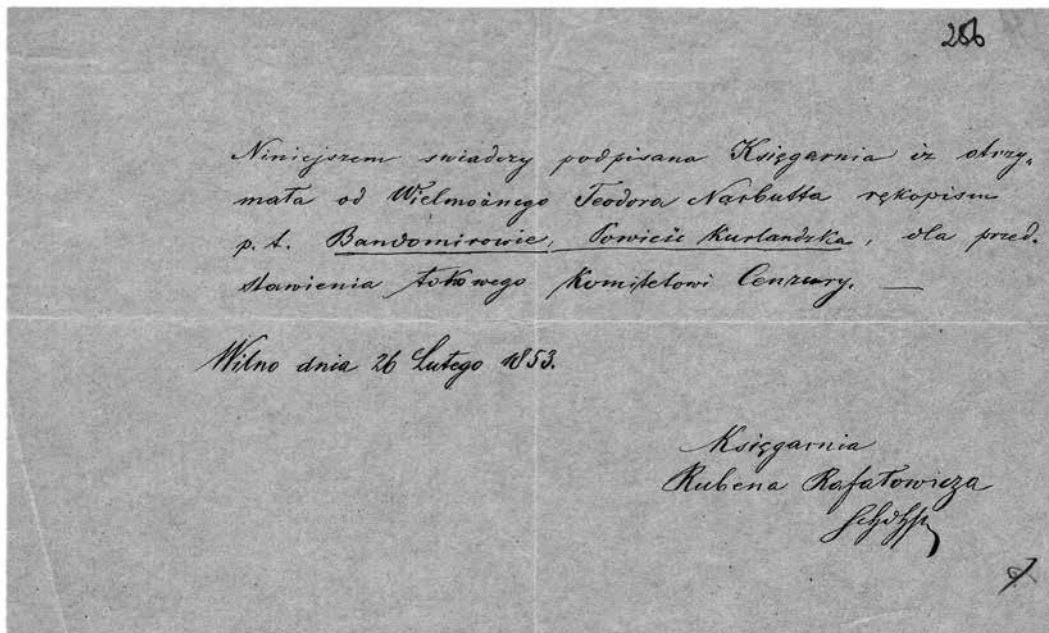 266
Niniejszem swiadczy podpisana Księgarnia iz otrzy,
mała od Wielmożnego Teodora Narbutta rękopism
p. t. Bandomirowie, Powieść Kurlandzka, dla przed.
stawienia takowego Komitetowi Cenzury. —
Wilno dnia 26 Lutego 1853.
Księgarnia
Rubena Rafałowicza